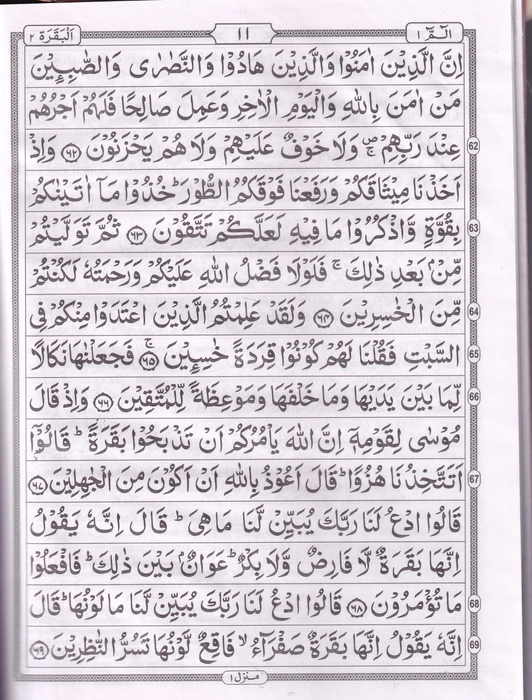 الٓمّٓ ١ ١١ اَلْبَقَرَة ٢
اِنَّ الَّذِيْنَ اٰمَنُوْا وَالَّذِيْنَ هَادُوْا وَالنَّصٰرٰى وَالصّٰبِـِٕيْنَ
مَنْ اٰمَنَ بِاللّٰهِ وَالْيَوْمِ الْاٰخِرِ وَعَمِلَ صَالِحًا فَلَهُمْ اَجْرُهُمْ
عِنْدَ رَبِّهِمْ ۪ۚ وَلَا خَوْفٌ عَلَيْهِمْ وَلَا هُمْ يَحْزَنُوْنَ ﴿٦٢﴾ وَاِذْ 62
اَخَذْنَا مِيْثَاقَكُمْ وَرَفَعْنَا فَوْقَكُمُ الطُّوْرَ ؕ خُذُوْا مَاۤ اٰتَيْنٰكُمْ
بِقُوَّةٍ وَّاذْكُرُوْا مَا فِيْهِ لَعَلَّكُمْ تَتَّقُوْنَ ﴿٦٣﴾ ثُمَّ تَوَلَّيْتُمْ 63
مِّنْۢ بَعْدِ ذٰلِكَ ۚ فَلَوْلَا فَضْلُ اللّٰهِ عَلَيْكُمْ وَرَحْمَتُهٗ لَكُنْتُمْ
مِّنَ الْخٰسِرِيْنَ ﴿٦٤﴾ وَلَقَدْ عَلِمْتُمُ الَّذِيْنَ اعْتَدَوْا مِنْكُمْ فِى 64
السَّبْتِ فَقُلْنَا لَهُمْ كُوْنُوْا قِرَدَةً خٰسِـِٕيْنَ ۚ ﴿٦٥﴾ فَجَعَلْنٰهَا نَكَالًا 65
لِّمَا بَيْنَ يَدَيْهَا وَمَا خَلْفَهَا وَمَوْعِظَةً لِّلْمُتَّقِيْنَ ﴿٦٦﴾ وَاِذْ قَالَ 66
مُوْسٰى لِقَوْمِهٖۤ اِنَّ اللّٰهَ يَاْمُرُكُمْ اَنْ تَذْبَحُوْا بَقَرَةً ؕ قَالُوْۤا
اَتَتَّخِذُنَا هُزُوًا ؕ قَالَ اَعُوْذُ بِاللّٰهِ اَنْ اَكُوْنَ مِنَ الْجٰهِلِيْنَ ﴿٦٧﴾ 67
قَالُوا ادْعُ لَنَا رَبَّكَ يُبَيِّنْ لَّنَا مَا هِىَ ؕ قَالَ اِنَّهٗ يَقُوْلُ
اِنَّهَا بَقَرَةٌ لَّا فَارِضٌ وَّلَا بِكْرٌ ؕ عَوَانٌۢ بَيْنَ ذٰلِكَ ؕ فَافْعَلُوْا
مَا تُؤْمَرُوْنَ ﴿٦٨﴾ قَالُوا ادْعُ لَنَا رَبَّكَ يُبَيِّنْ لَّنَا مَا لَوْنُهَا ؕ قَالَ 68
اِنَّهٗ يَقُوْلُ اِنَّهَا بَقَرَةٌ صَفْرَآءُ ۙ فَاقِعٌ لَّوْنُهَا تَسُرُّ النّٰظِرِيْنَ ﴿٦٩﴾ 69
منزل ١